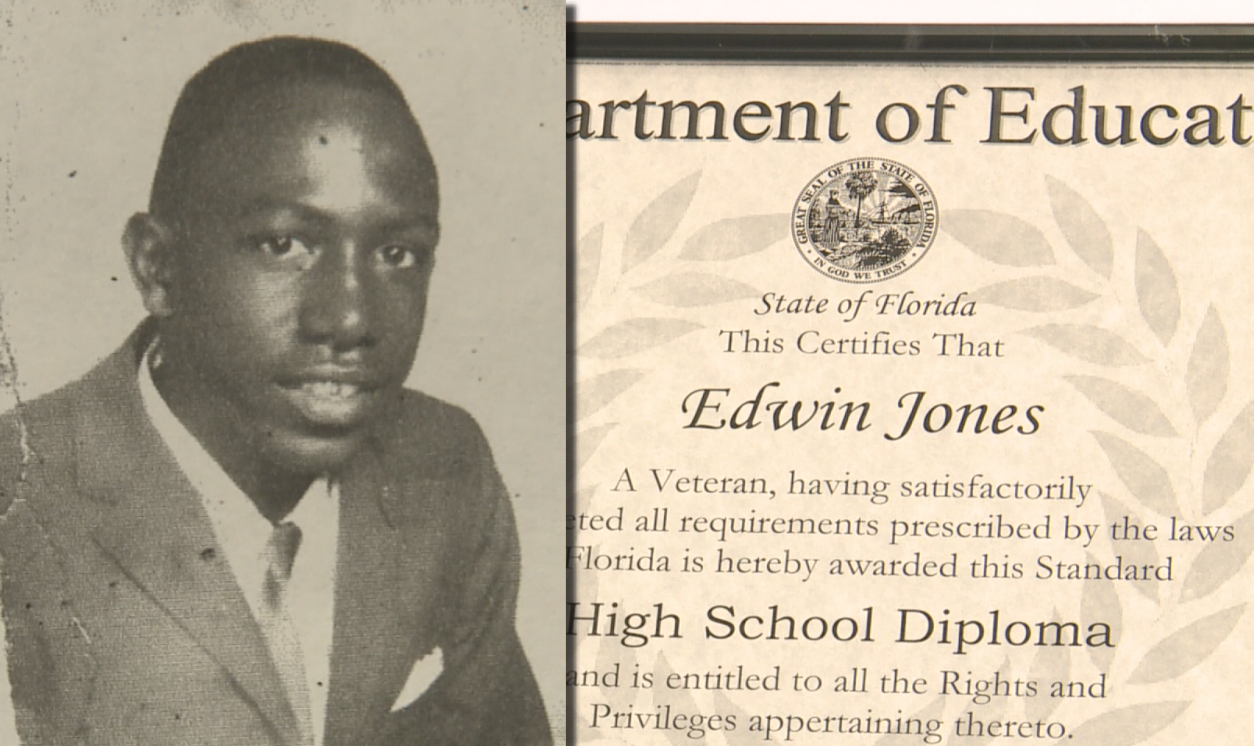 artment of Educat
GREAT SEAL OF THE STATE OF FLORIDA
IN GOD WE TRUST
State of Florida
This Certifies That
Edwin Jones
A Veteran, having satisfactorily
eted all requirements prescribed by the laws
Florida is hereby awarded this Standard
High School Diploma
and is entitled to all the Rights and
Privileges appertaining thereto.